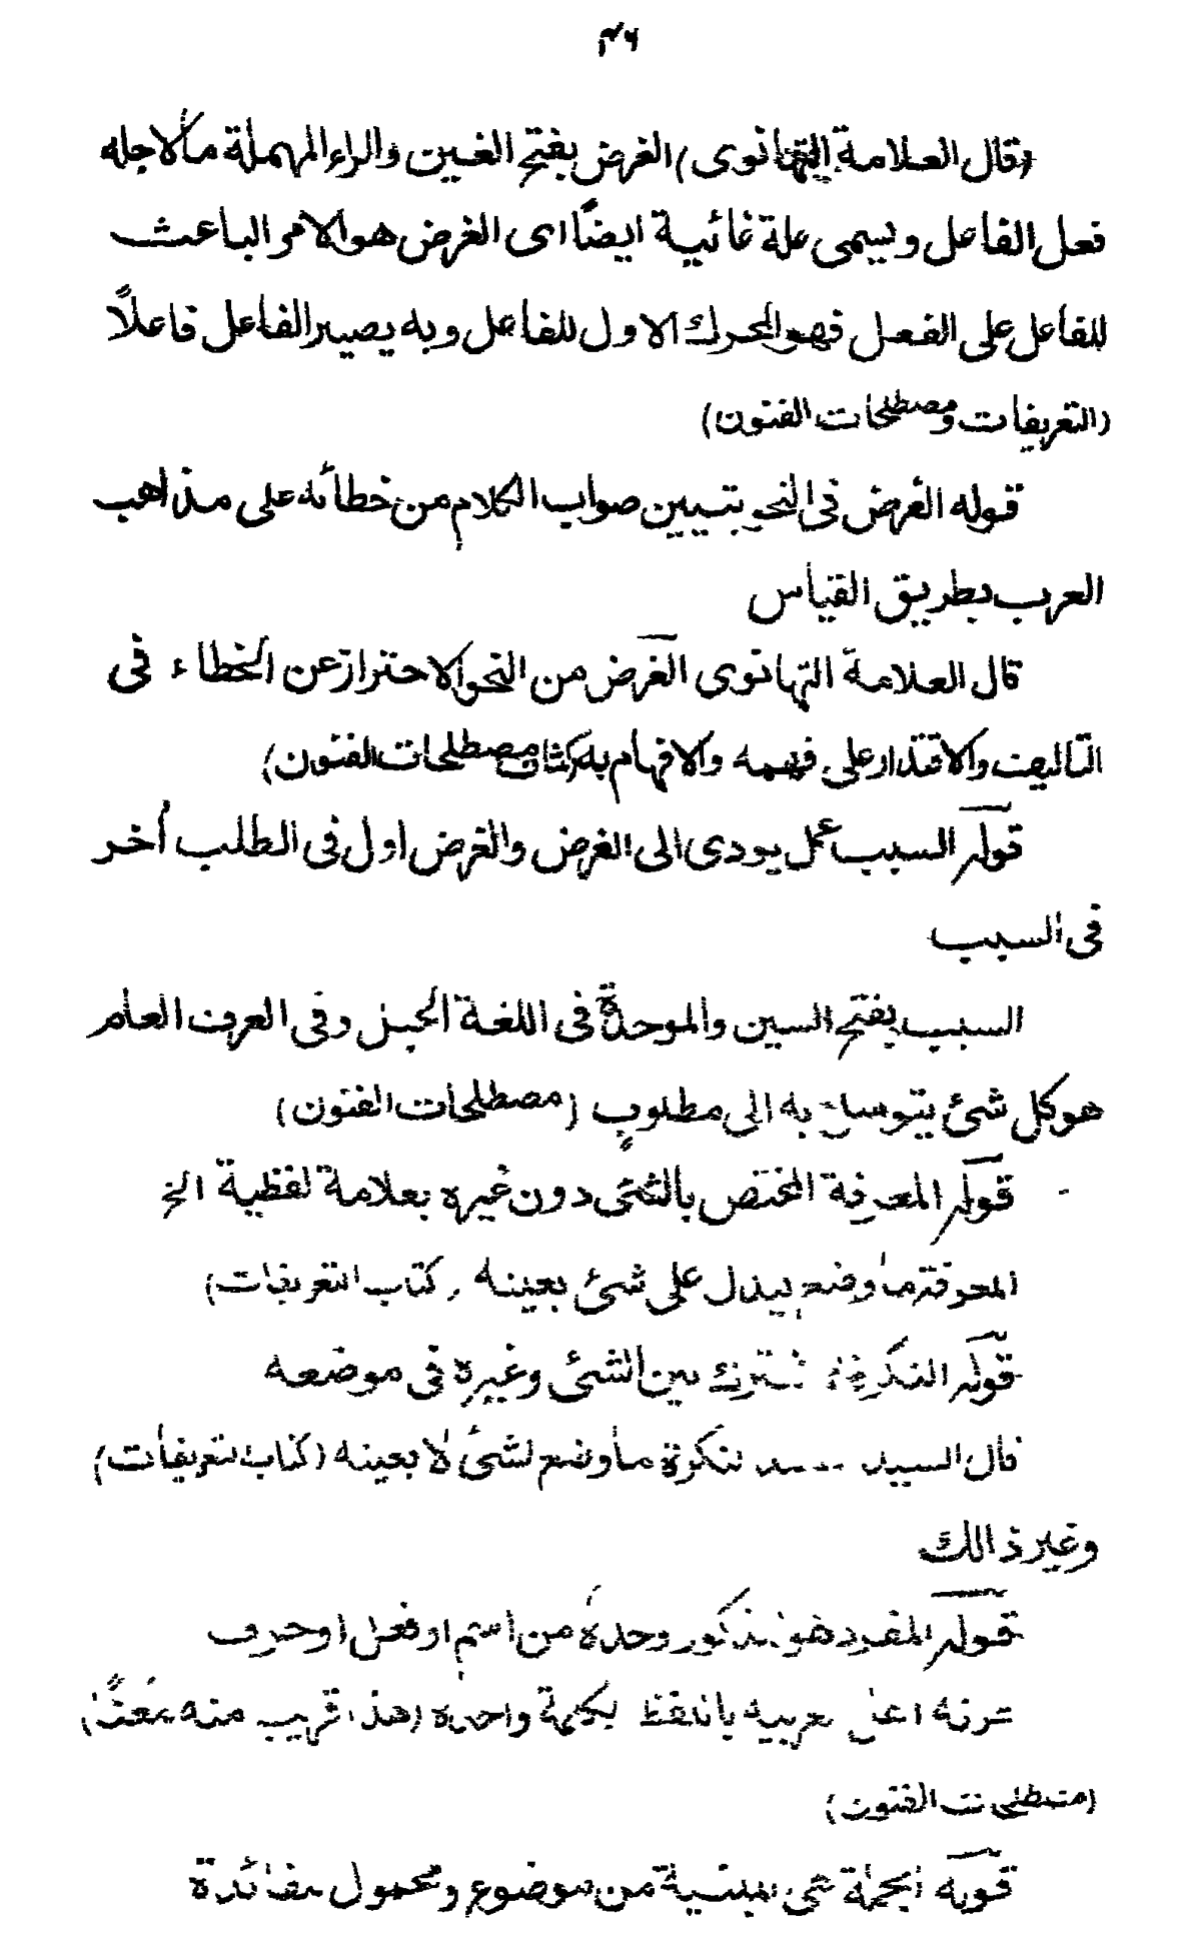 ٣٦
(قال العلامة التهانوى) الغرض بفتح الغين والراء المهملة مالاجله
فعل الفاعل ويسمى علة غائية ايضًا اى الغرض هوالامر الباعث
للفاعل على الفعل فهو المحرك الاول للفاعل وبه يصير الفاعل فاعلاً
(التعريفات ومصطلحات الفنون)
قوله الغرض فى النحو بتبيين صواب الكلام من خطائه على مذاهب
العرب بطريق القياس
قال العلامة التهانوى الغرض من النحو الاحتراز عن الخطاء فى
التاليف والاقتدار على فهمه والافهام به (كشاف مصطلحات الفنون)
قوله السبب عمل يودى الى الغرض والغرض اول فى الطلب أخر
فى السبب
السبب بفتح السين والموحدة فى اللغة الحبل وفى العرف العام
هو كل شئ يتوسل به الى مطلوبٍ (مصطلحات الفنون)
قوله المعرفة المختص بالشئى دون غيره بعلامة لفظية الخ
المعرفة ما وضع ليدل على شئ بعينه (كتاب التعريفات)
قوله النكرة بين الشئى وغيره فى موضعه
قال السيد نكرة ماوضع لشئ لا بعينه (كتاب التعريفات)
وغير ذالك
قوله المفرد هو مذكور وحدة من اسم او فعل او حرف
باللفظ بكلمة واحدة (هذا قريب منه
(مصطلحات الفنون)
قوله الجملة هى المبنية من موضوع ومحمول للفائدة